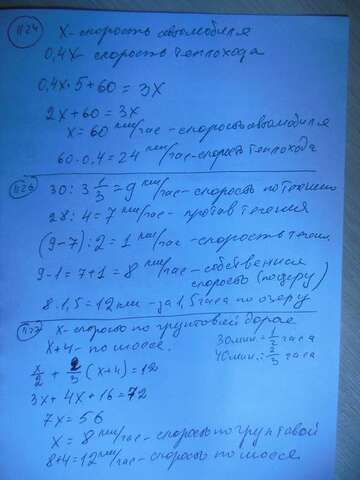 1124
x - скорость автомобиля
0,4x - скорость теплохода
0,4x · 5 + 60 = 3x
2x + 60 = 3x
x = 60 км/час - скорость автомобиля
60 · 0,4 = 24 км/час - скорость теплохода
1126 30 : 3 1/3 = 9 км/час - скорость по течению
28 : 4 = 7 км/час - против течения
(9-7) : 2 = 1 км/час - скорость течен.
9-1 = 7+1 = 8 км/час - собственная
скорость (по озеру)
8 · 1,5 = 12 км - за 1,5 часа по озеру
1127 x - скорость по грунтовой дороге
x+4 - по шоссе. 30 мин = 1/2 часа
40 мин. = 2/3 часа
x/2 + 2/3 (x+4) = 12
3x + 4x + 16 = 72
7x = 56
x = 8 км/час - скорость по грунтовой
8+4 = 12 км/час - скорость по шоссе